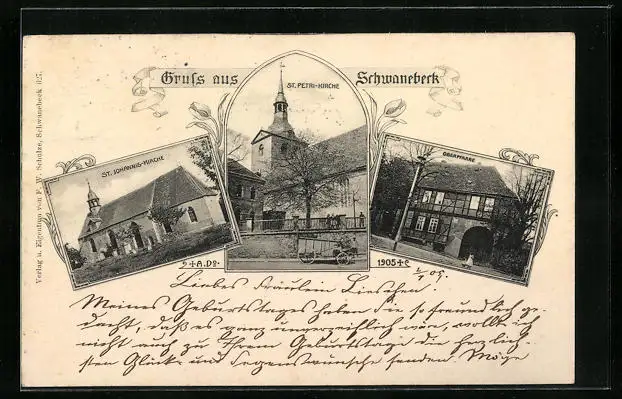 Gruss aus Schwanebeck
ST. PETRI-KIRCHE
ST. JOHANNIS-KIRCHE
OBERPFARRE
Verlag u. Eigentum von F. W. Schulze, Schwanebeck 827.
S+A.DS.
1905+C
2/1 09.
Liebes Fräulein Lieschen!
Meines Geburtstages haben Sie so freundlich ge-
dacht, daß es ganz unverzeihlich wäre, wollte ich
nicht auch zu Ihrem Geburtstage die herzlich-
sten Glück- und Segenswünsche senden. Möge